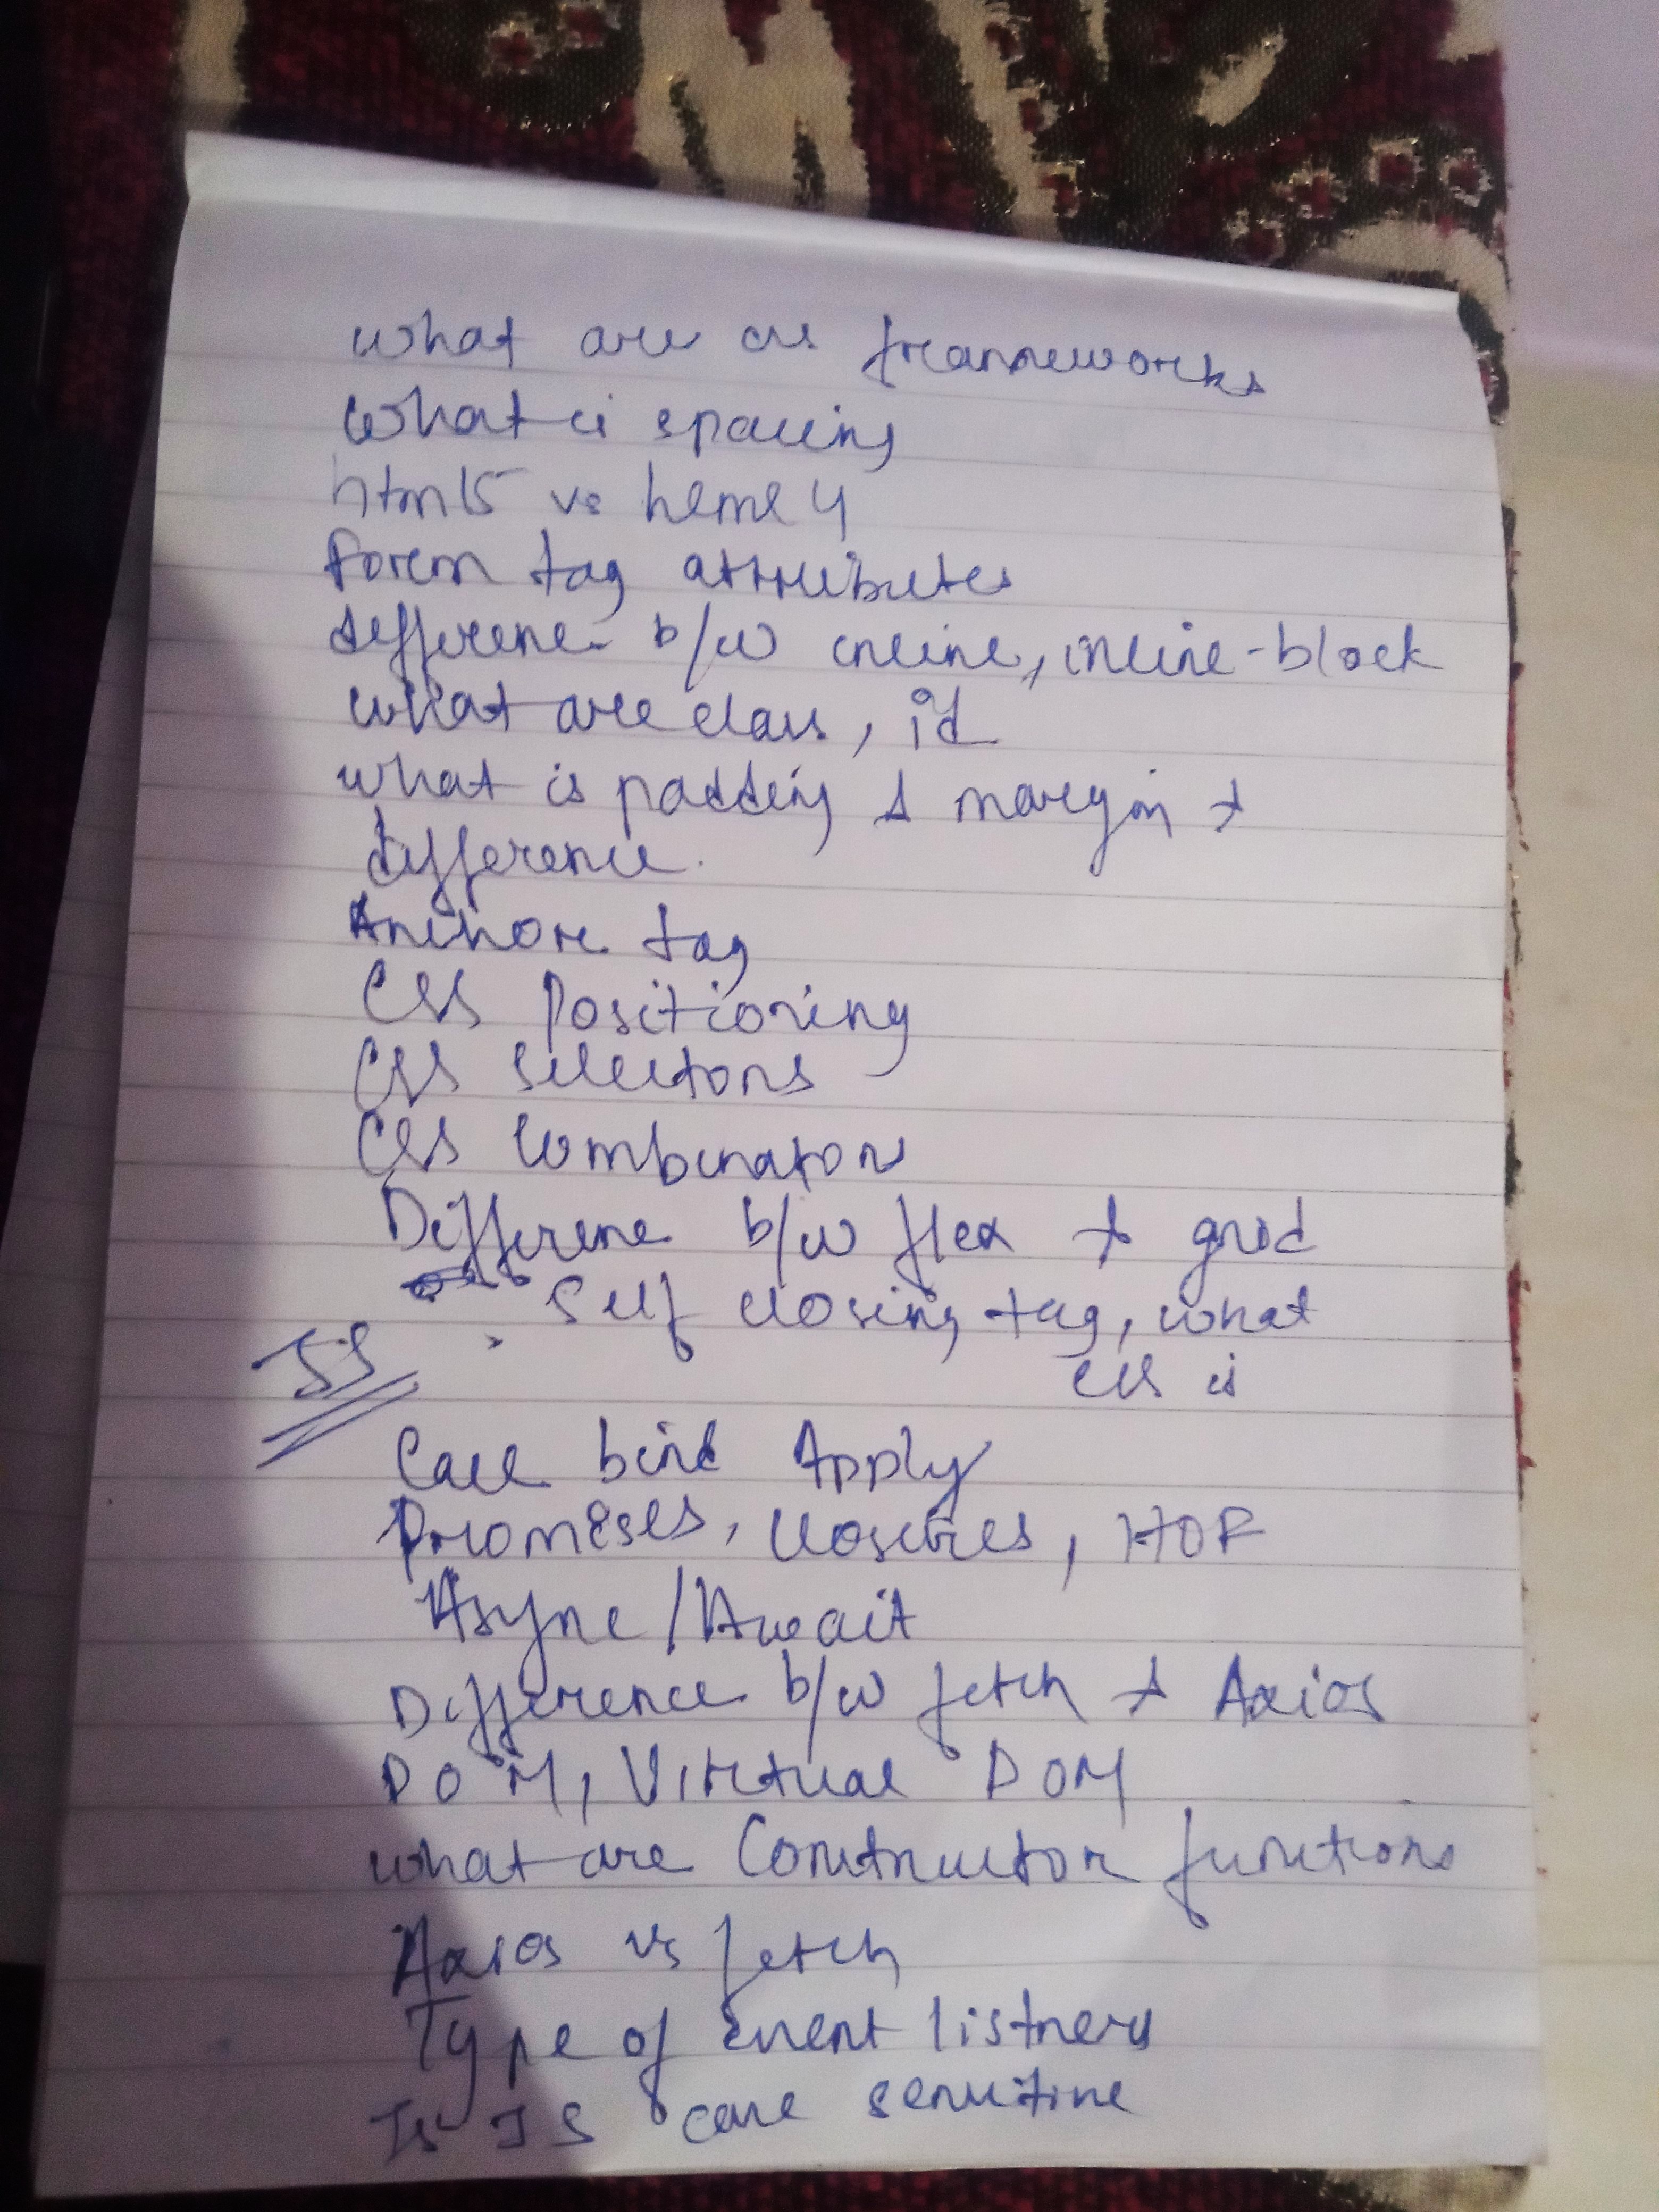 what are css frameworks
What is spacing
html5 vs html 4
Form tag attributes
difference b/w inline, inline-block
what are class, id
what is padding & margin &
difference.
Anchor tag
CSS Positioning
CSS selectors
CSS Combinators
Difference b/w flex & grid
Self closing tag, what
css is
JS
Call bind Apply
Promises, Closures, HOF
Async/Await
Difference b/w fetch & Axios
DOM, Virtual DOM
what are Constructor functions
Axios vs fetch
Type of event listners
Is JS case sensitive